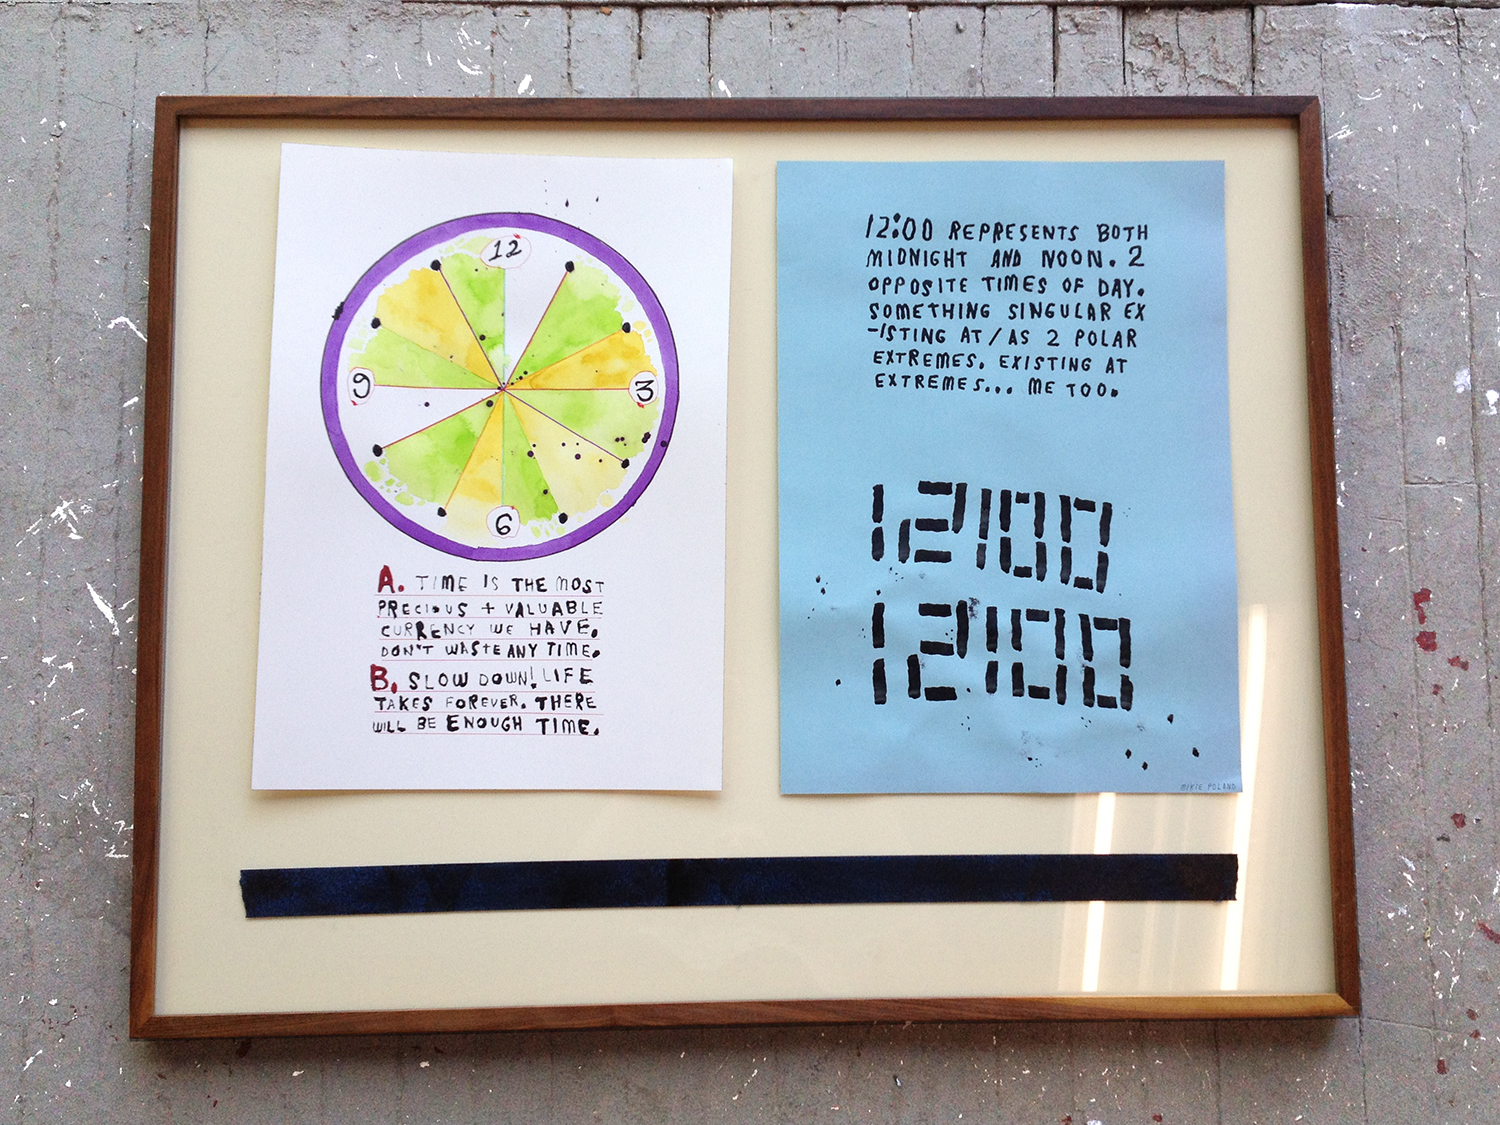 12
9
3
6
A. TIME IS THE MOST
PRECIOUS + VALUABLE
CURRENCY WE HAVE.
DON'T WASTE ANY TIME.
B. SLOW DOWN! LIFE
TAKES FOREVER. THERE
WILL BE ENOUGH TIME.
12:00 REPRESENTS BOTH
MIDNIGHT AND NOON. 2
OPPOSITE TIMES OF DAY.
SOMETHING SINGULAR EX
-ISTING AT/AS 2 POLAR
EXTREMES. EXISTING AT
EXTREMES... ME TOO.
12:00
12:00
MIKIE POLAND